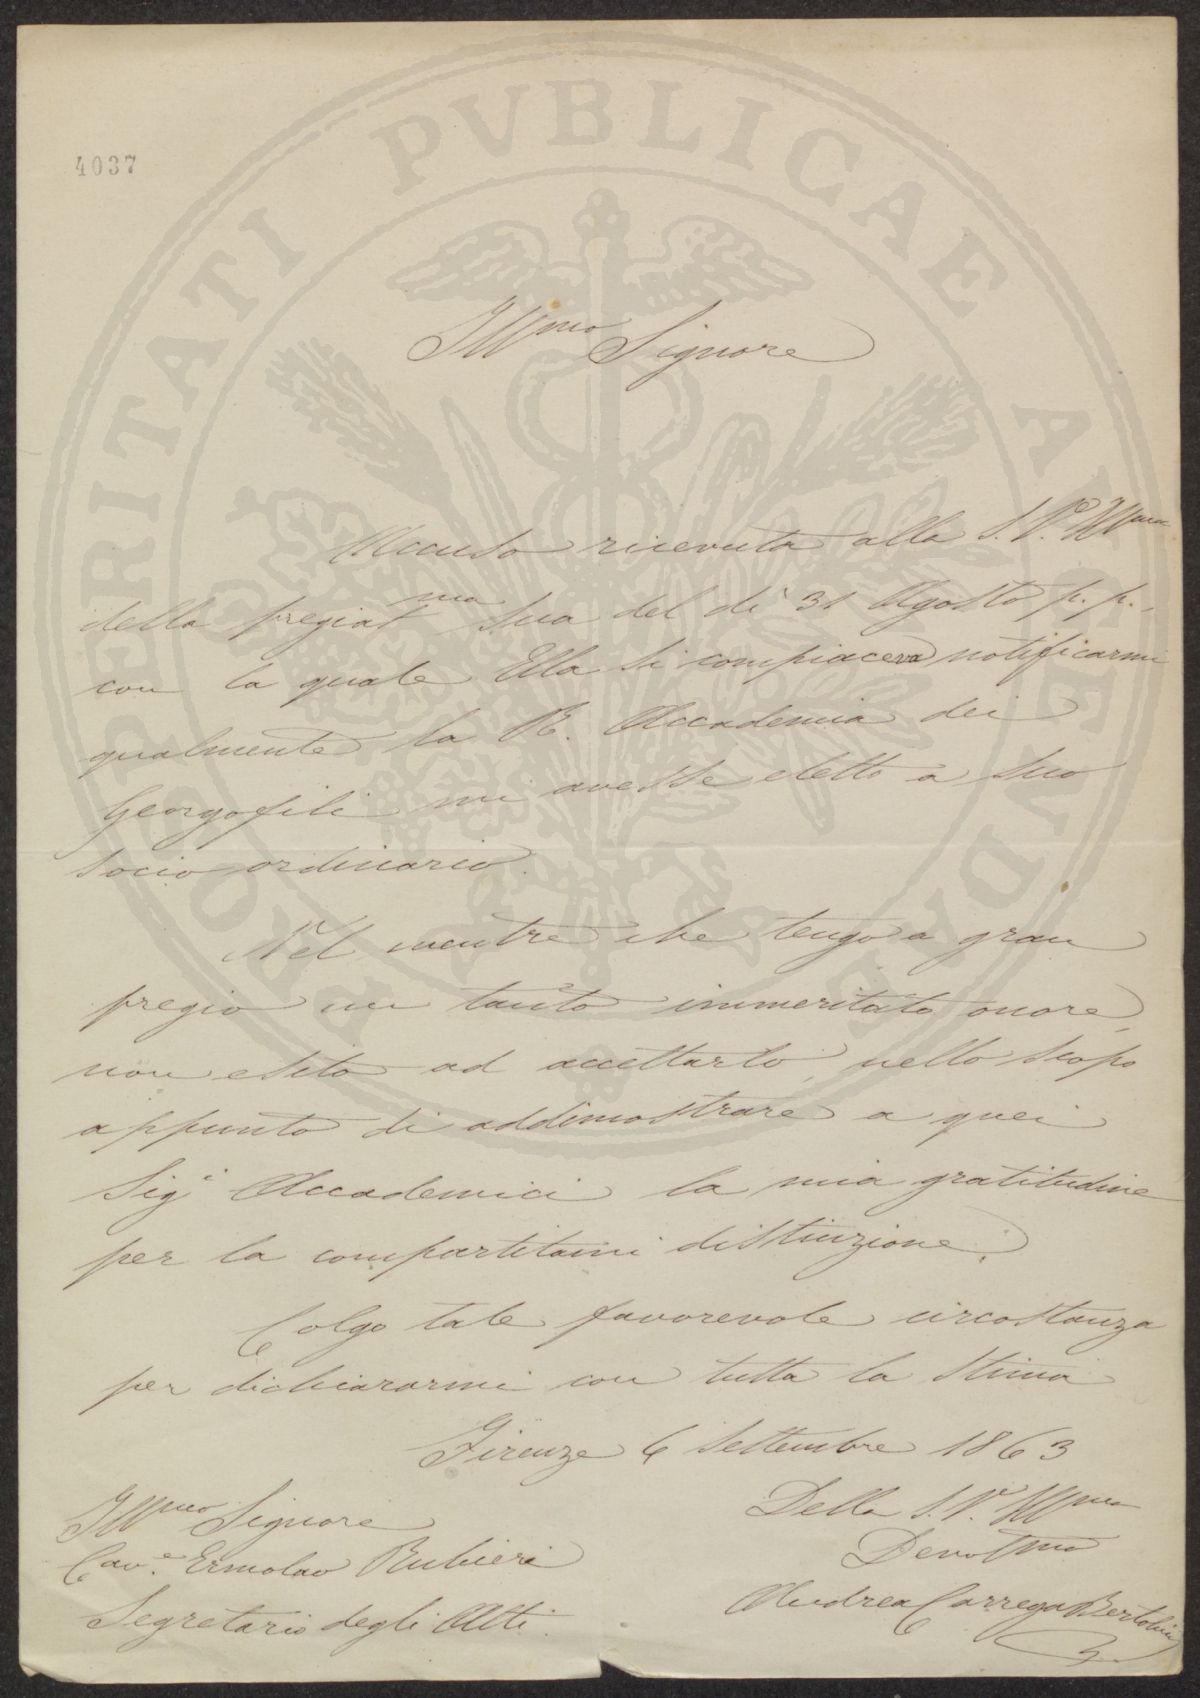 PROSPERITATI PVBLICAE AVGENDAE
4037
Illmo Signore
Accuso ricevuta alla S. V. Illma
della pregiatma Sua del dì 31 Agosto p. p.,
con la quale Ella si compiaceva notificarmi
qualmente la R. Accademia dei
Georgofili mi avesse eletto a suo
socio ordinario.
Nel mentre che tengo a gran
pregio un tanto immeritato onore,
non esito ad accettarlo, nello scopo
appunto di addimostrare a quei
Sigi Accademici la mia gratitudine
per la compartitami distinzione.
Colgo tale favorevole circostanza
per dichiararmi con tutta la stima
Firenze 6 Settembre 1863
Della S. V. Illma
Devotmo
Andrea Carrega Bertolini
Illmo Signore
Cave. Ermolao Rubieri
Segretario degli Atti.